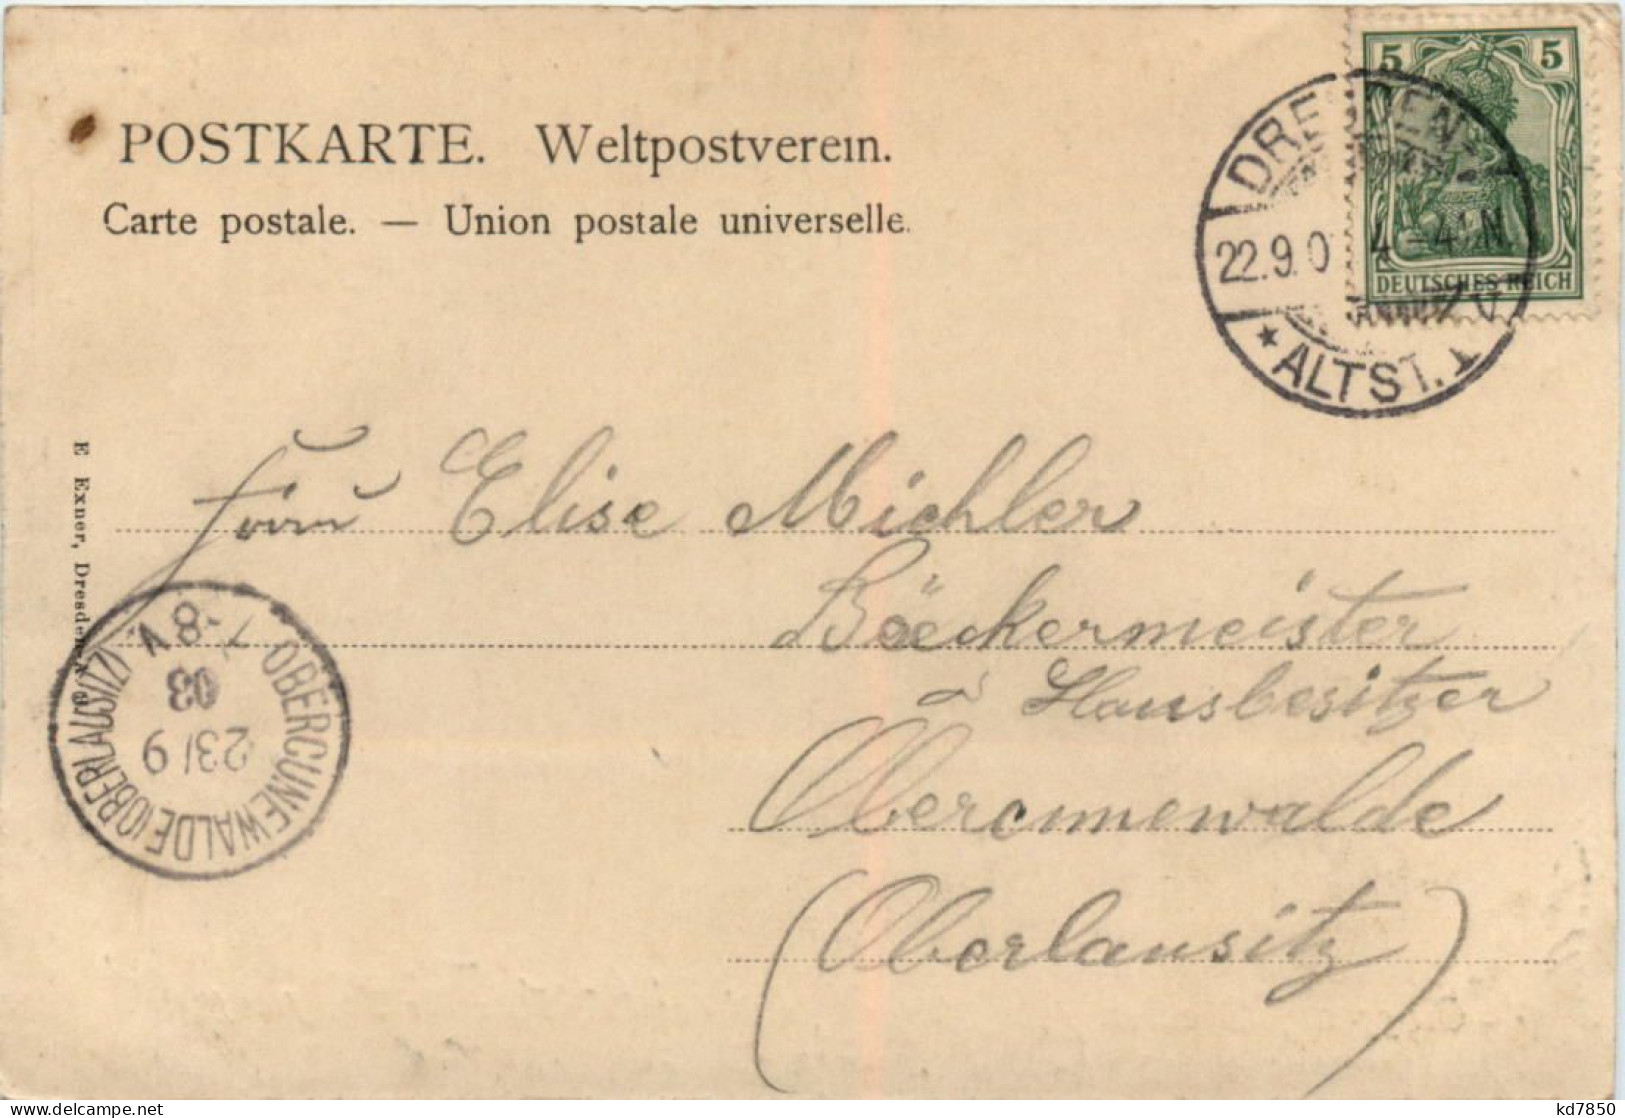 POSTKARTE. Weltpostverein.
Carte postale. — Union postale universelle.
5 5
DEUTSCHES REICH
DRESDEN
22.9.0 4-4½N.
* ALTST. 1
E Exner, Dresden-A
Frau Elise Michler
Bäckermeister
Hausbesitzer
Obercunewalde
(Oberlausitz)
OBERCUNEWALDE (OBERLAUSITZ)
23/9
03
7-8V
kd7850